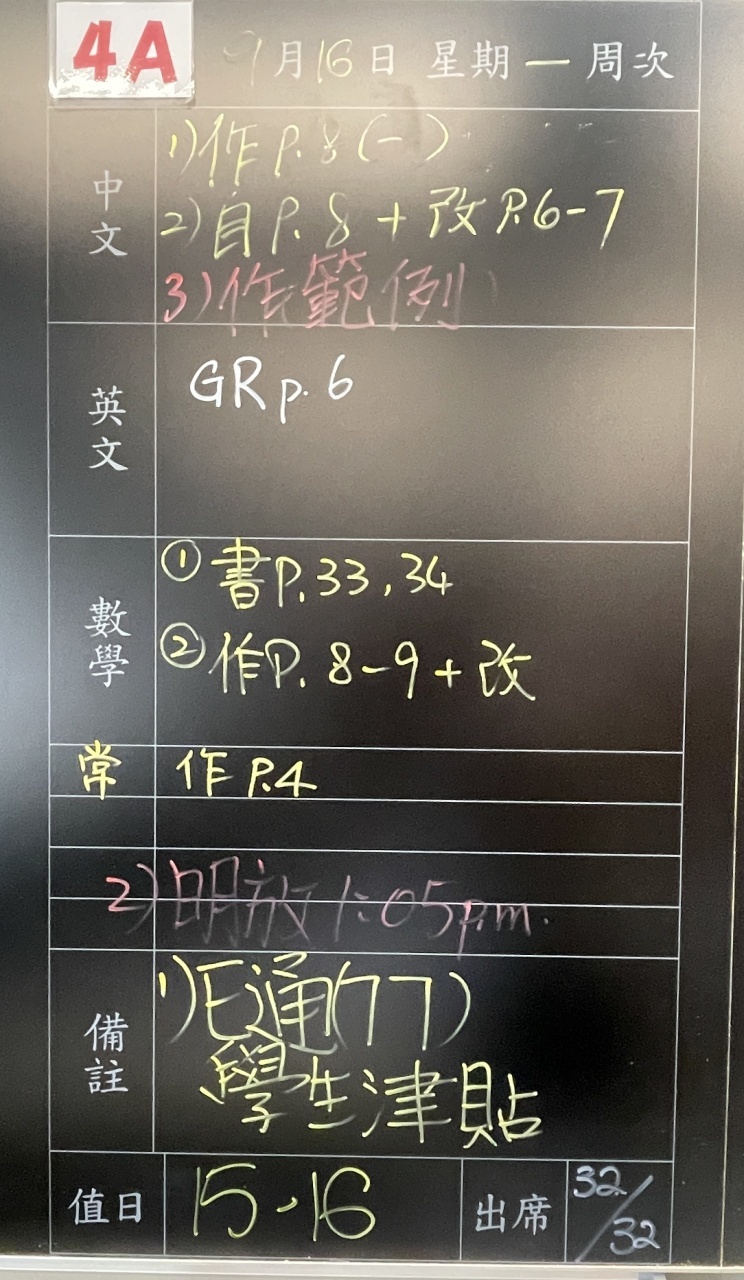 4A
9月16日 星期一 周次
中文
1)作P.8(一)
2)自P.8+改P.6-7
3)作範例
英文
GR p.6
數學
①書P.33,34
②作P.8-9+改
常 作P.4
2)明放1:05pm.
備註
1)E通(77)
學生津貼
值日 15,16 出席 32/32